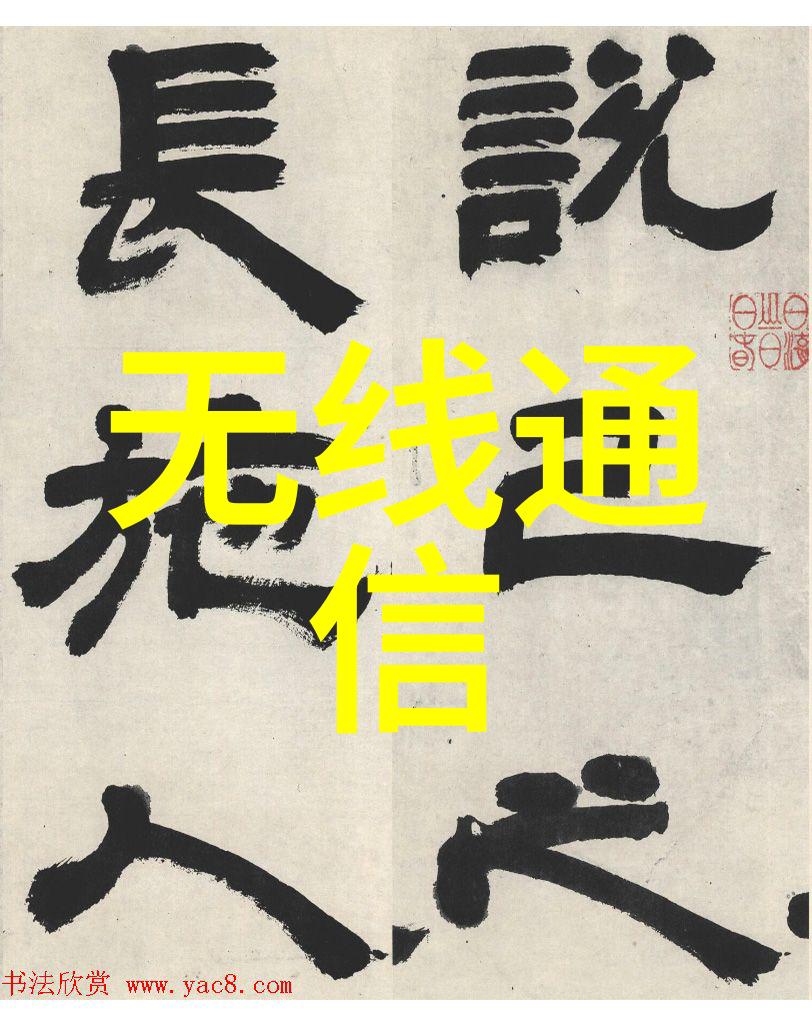 說己之
長施人
无线通
信
书法欣赏 www.yac8.com